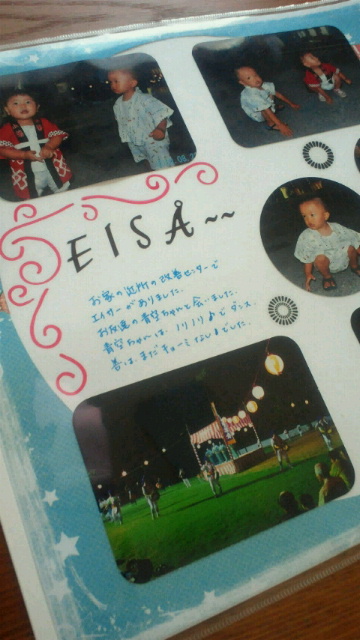 EISÅ~~
お家の近所の改善センターで
エイサーがありました。
お友達の青空ちゃんと会いました。
青空ちゃんは、ノリノリ♪でダンス
善は、まだキョーミなし♪でした。